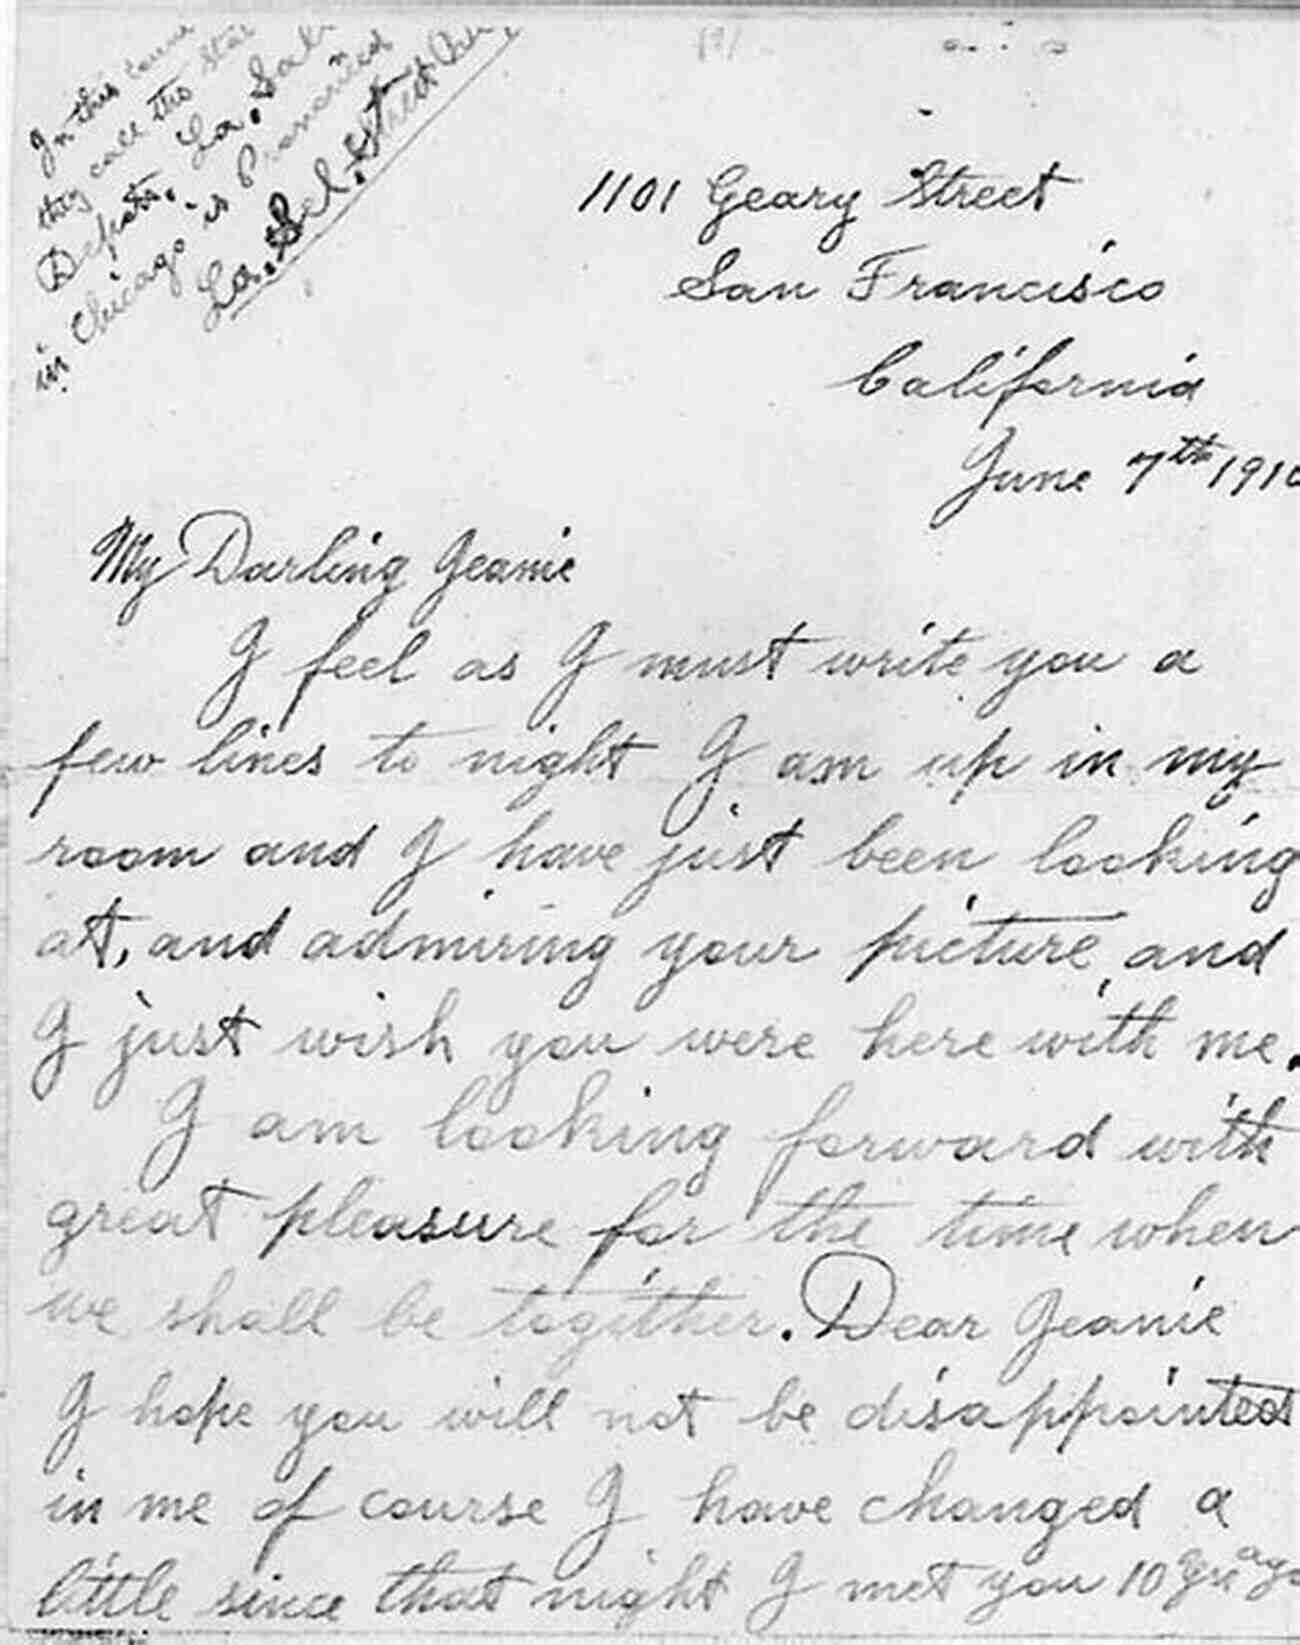 In this
they call the
Depots. La. Salle
in Chicago is Pronounced
La. Sal. Street
1101 Geary Street
San Francisco
California
June 7th 1910
My Darling Jeanie
I feel as I must write you a
few lines to night I am up in my
room and I have just been looking
at, and admiring your picture, and
I just wish you were here with me.
I am looking forward with
great pleasure for the time when
we shall be together. Dear Jeanie
I hope you will not be disappointed
in me of course I have changed a
little since that night I met you 10 yrs ago